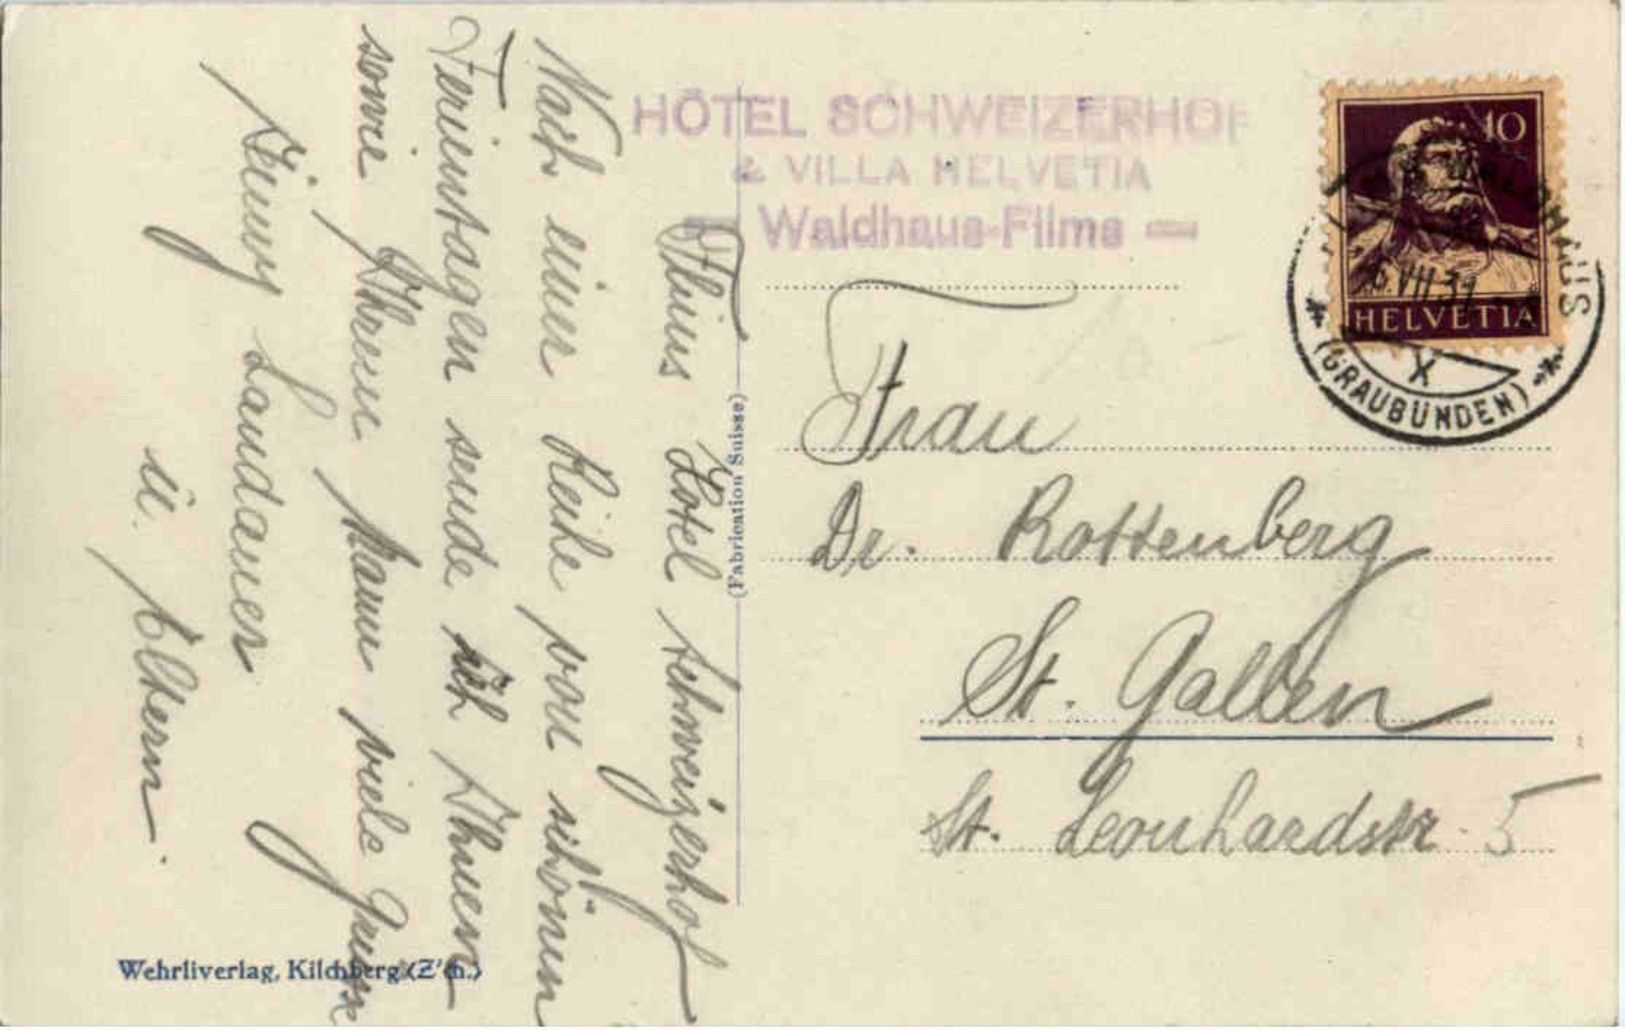 HÔTEL SCHWEIZERHOF
& VILLA HELVETIA
Waldhaus-Flims
10
HELVETIA
VII.31
X
(GRAUBÜNDEN)
Flims Hotel Schweizerhof
Nach einer Reihe von schönen
Ferientagen sende ich Ihnen
sowie Ihrem Mann viele Grüsse
Landauer
u. Eltern.
(Fabrication Suisse)
Frau
Dr. Rottenberg
St. Gallen
St. Leonhardstr. 5
Wehrliverlag, Kilchberg (Z'ch.)